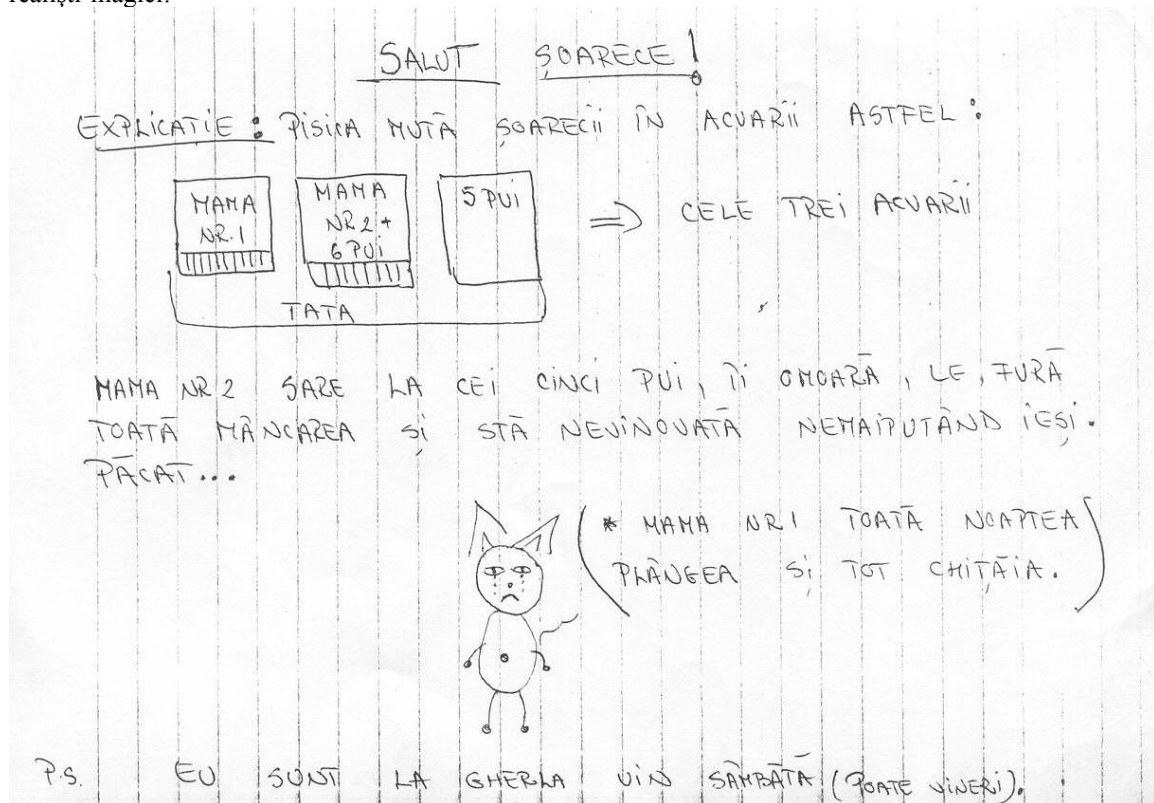 realiști magici.
SALUT ȘOARECE!
EXPLICATIE: PISICA MUTĂ ȘOARECII ÎN ACVARII ASTFEL:
MAMA
NR.1
MAMA
NR 2 +
6 PUI
5 PUI
⇒ CELE TREI ACVARII
TATA
MAMA NR 2 SARE LA CEI CINCI PUI, ÎI OMOARĂ, LE, FURĂ
TOATĂ MÂNCAREA ȘI STĂ NEVINOVATĂ NEMAIPUTÂND IEȘI.
PĂCAT...
(* MAMA NR1 TOATĂ NOAPTEA
PLÂNGEA ȘI TOT CHIȚĂIA.)
P.S. EU SUNT LA GHERLA VIN SÂMBĂTĂ (POATE VINERI).